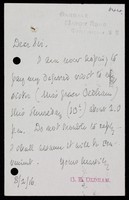 Dear Sir,
I am now hoping to
pay my deferred visit to
(Miss Grace Oldham)
this Thursday (10th) about 2.0
p.m. Do not trouble to reply -
I shall assume it will be con-
venient.
Yours truly,
8/2/16